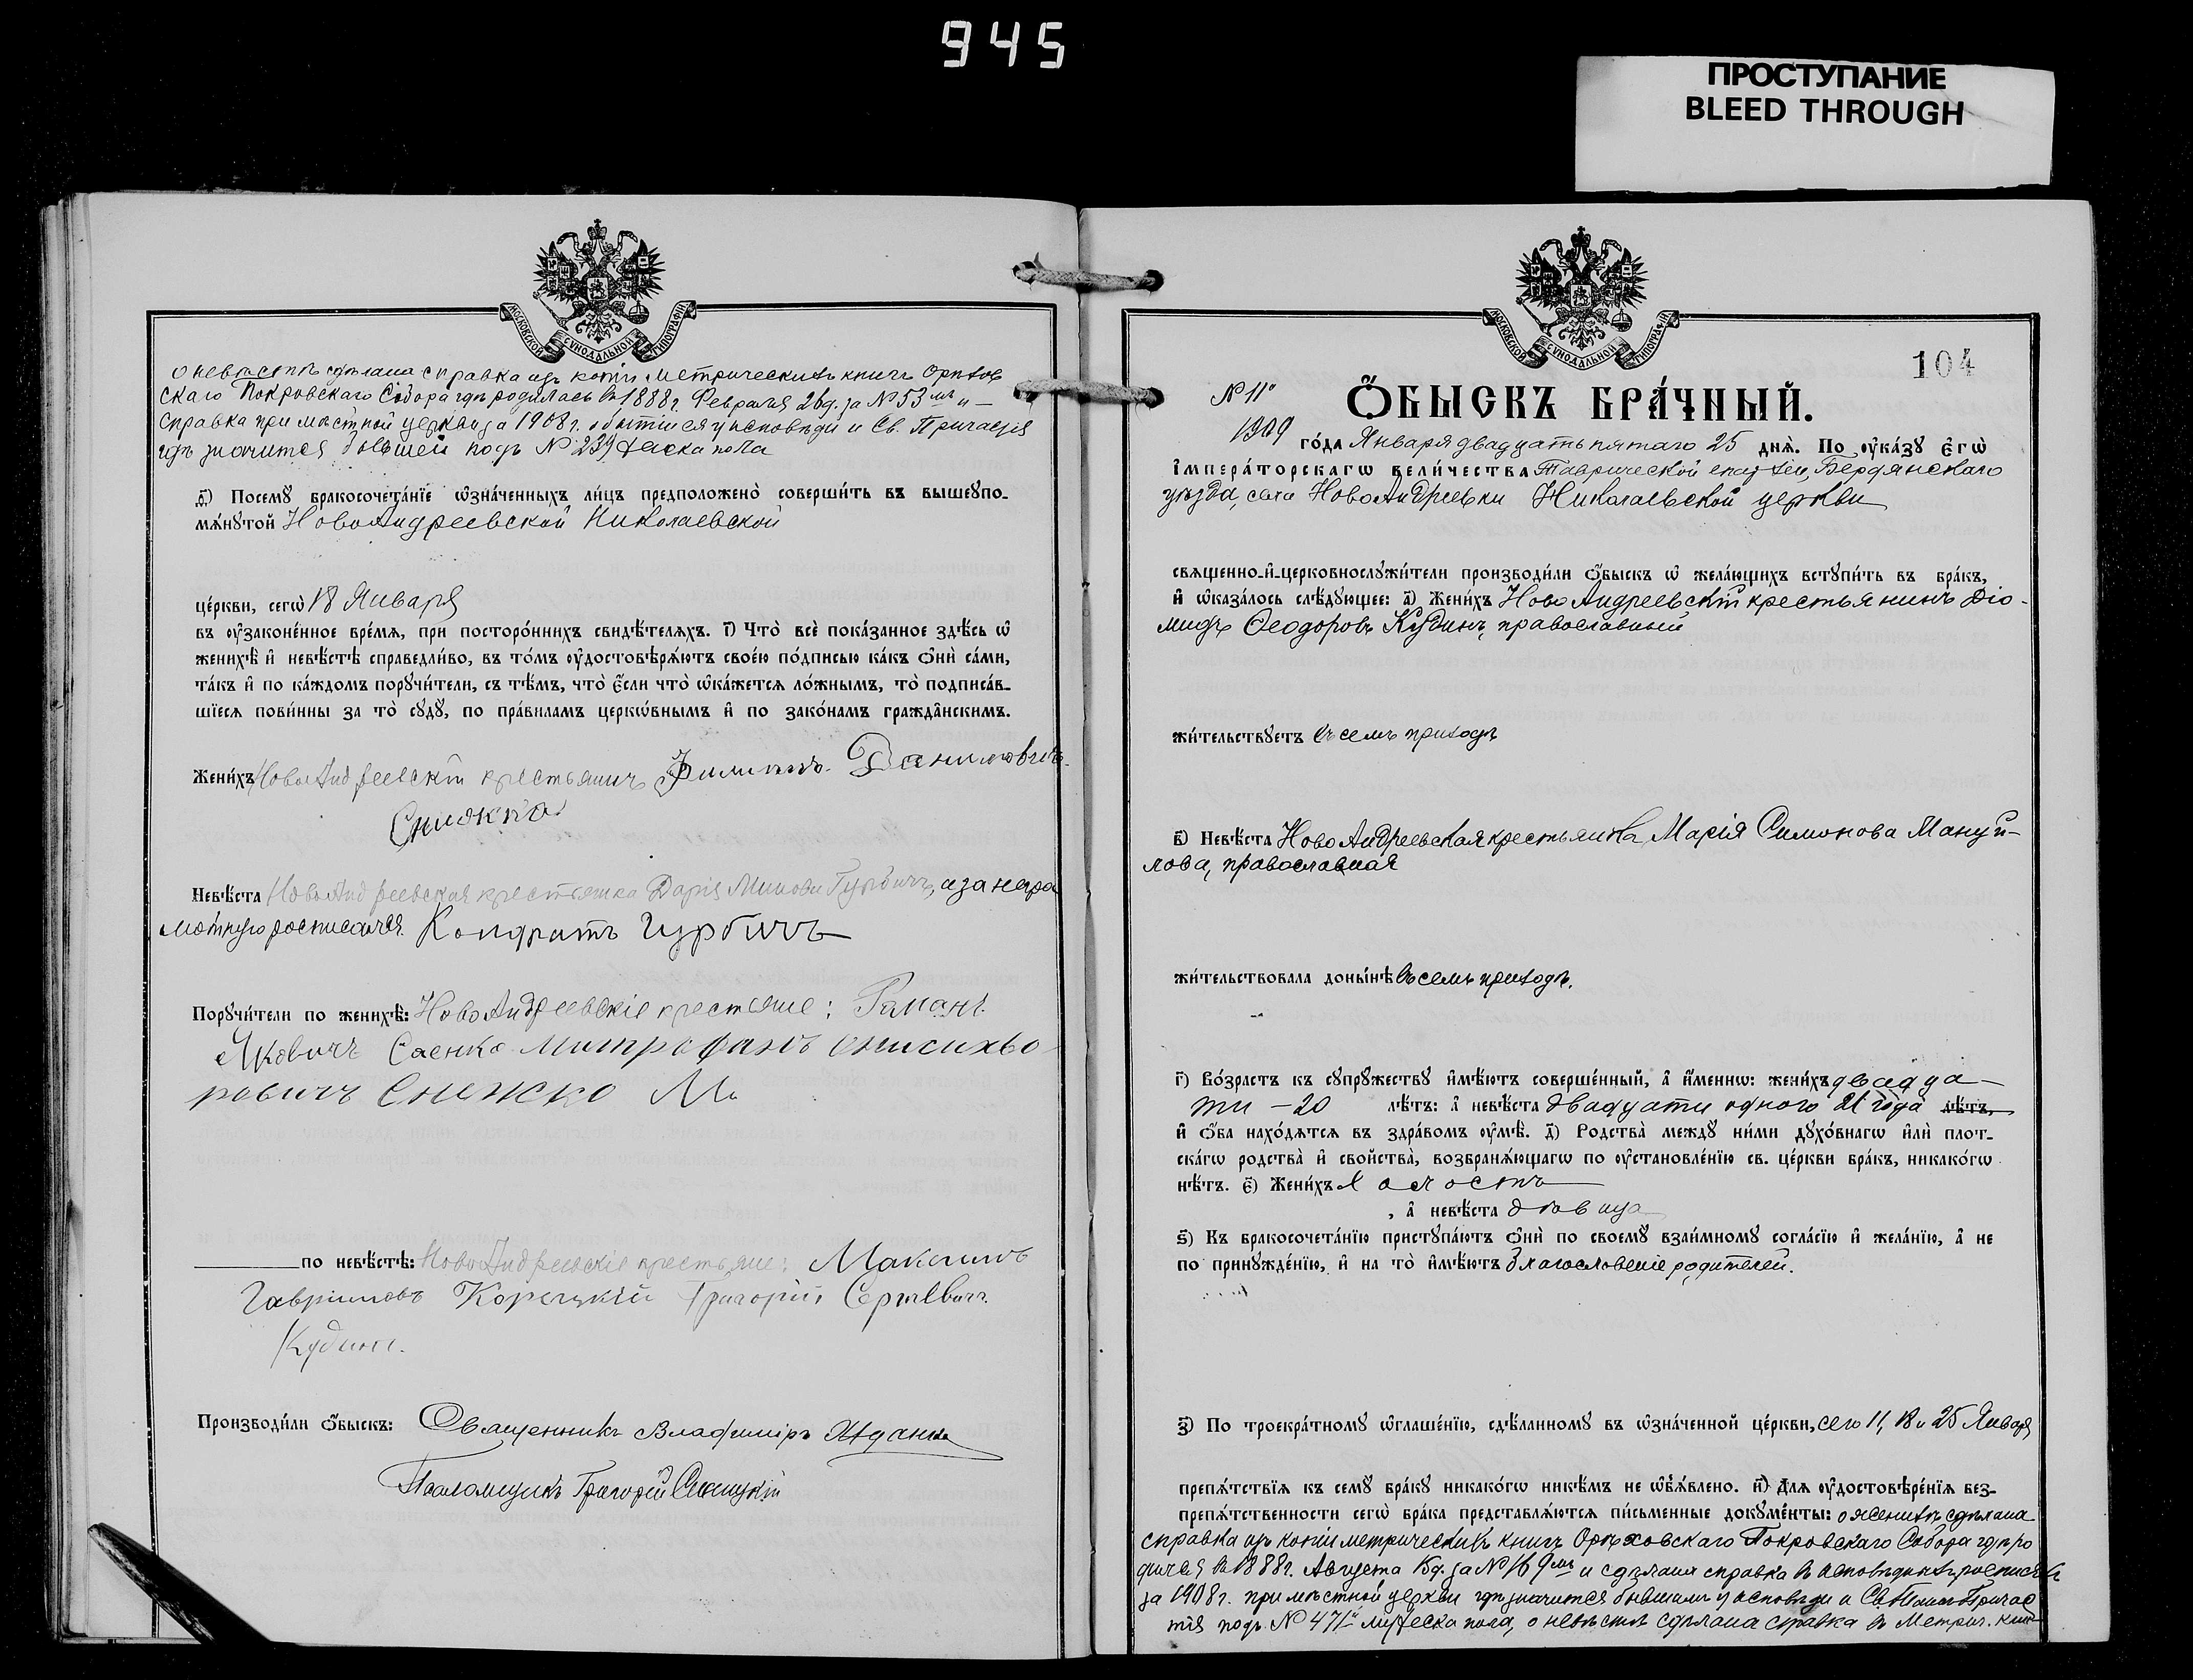 945
ПРОСТУПАНИЕ
BLEED THROUGH
МОСКОВСКОЙ СѴНОДАЛЬНОЙ ТИПОГРАФІИ
о невѣстѣ сдѣлана справка изъ копіи метрическихъ книгъ Орѣхов
скаго Покровскаго Собора гдѣ родилась въ 1888 г. Февраля 26 д. за № 53мъ
справка при мѣстной церкви за 1908 г. о бытіи ея у исповѣди и Св. Причастія
гдѣ значится бывшей подъ № 239 женска пола
д҃) Посемꙋ бракосочета́нїе ѡ҆зна́ченныхъ ли́цъ предположено̀ соверши́ть въ вышеꙋпо-
мѧ́нꙋтой НовоАндреевской Николаевской
це́ркви, сегѡ̀ 18 Января
въ ᲂу҆законе́нное вре́мѧ, при посторо́ннихъ свидѣ́телѧхъ. і҃) Что̀ всѐ пока́занное здѣ́сь ѡ҆
женихѣ̀ и҆ невѣ́стѣ справедли́во, въ то́мъ ᲂу҆достовѣрѧ́ютъ свое́ю по́дписью ка́къ ѻ҆нѝ са́ми,
та́къ и҆ по ка́ждомъ порꙋчи́тели, съ тѣ́мъ, что̀ є҆́сли что̀ ѡ҆ка́жетсѧ ло́жнымъ, то̀ подписа́в-
шїесѧ пови́нны за то̀ сꙋдꙋ̀, по пра́виламъ церко́внымъ и҆ по зако́намъ гражда́нскимъ.
Жени́хъ НовоАндреевскій крестьянинъ Филиппъ Даниловичъ
Снижко
Невѣ́ста НовоАндреевская крестьянка Дарія Гурбичъ, а за негра
мотную росписался Кондратъ Гурбичъ
Порꙋчи́тели по женихѣ̀: НовоАндреевскіе крестьяне: Раманъ
Яковичъ Саенко Митрофанъ
ровичъ Снежско М.
по невѣ́стѣ: НовоАндреевскіе крестьяне: Максимъ
Гавриловъ Корецкій Григорій Сергѣевичъ
Кудинъ.
Производи́ли ѻ҆́быскъ: Священникъ Владиміръ
Псаломщикъ Григорій
104
№ 11й
Ѻ҆́БЫСКЪ БРА́ЧНЫЙ.
1909 го́да Января двадцать пятаго 25 днѧ̀. По ᲂу҆ка́зꙋ Є҆гѡ̀
И҆мпера́торскагѡ Вели́чества Таврической епархіи, Бердянскаго
уѣзда, села НовоАндреевки Николаевской церкви
свѧщенно-и҆-церковнослꙋжи́тели производи́ли ѻ҆́быскъ ѡ҆ жела́ющихъ встꙋпи́ть въ бра́къ,
и҆ ѡ҆каза́лось слѣ́дꙋющее: а҃) Жени́хъ НовоАндреевскій крестьянинъ Діо-
мидъ Ѳеодоровъ Кудинъ, православный
жи́тельствꙋетъ въ семъ приходѣ
в҃) Невѣ́ста НовоАндреевская крестьянка Марія Симонова Мануй-
лова, православная
жи́тельствовала доны́нѣ въ семъ приходѣ.
г҃) Во́зрастъ къ сꙋпрꙋ́жествꙋ и҆мѣ́ютъ соверше́нный, а҆ и҆́меннѡ: жени́хъ двадца-
ти - 20 лѣ́тъ: а҆ невѣ́ста двадцати одного 21 года лѣ́тъ,
и҆ ѻ҆́ба нахо́дѧтсѧ въ здра́вомъ ᲂу҆мѣ̀. д҃) Родства̀ междꙋ ни́ми дꙋхо́внагѡ и҆лѝ плот-
ска́гѡ родства̀ и҆ сво́йства̀, возбранѧ́ющагѡ по ᲂу҆становле́нїю св. це́ркви бра́къ, никако́гѡ
нѣ́тъ. є҃) Жени́хъ холостъ
, а҆ невѣ́ста дѣвица
ѕ҃) Къ бракосочета́нїю пристꙋпа́ютъ ѻ҆нѝ по своемꙋ̀ взаи́мномꙋ согла́сїю и҆ жела́нїю, а҆ не
по принꙋжде́нїю, и҆ на то̀ и҆мѣ́ютъ благословеніе родителей.
з҃) По троекра́тномꙋ ѡ҆глаше́нїю, сдѣ́ланномꙋ въ ѡ҆зна́ченной це́ркви, сего 11, 18 и 25 Января
препѧ́тствїѧ къ семꙋ̀ бра́кꙋ никако́гѡ никѣ́мъ не ѡ҆б̾ѧ́влено. и҃) Длѧ ᲂу҆достовѣре́нїѧ без-
препѧ́тственности сегѡ̀ бра́ка представлѧ́ютсѧ пи́сьменные докꙋме́нты: о женихѣ сдѣлана
справка изъ копіи метрическихъ книгъ Орѣховскаго Покровскаго Собора гдѣ ро
дился въ 1888 г. Августа 15 д. за № 169мъ и сдѣлана справка въ исповѣдныхъ росписяхъ
за 1908 г. при мѣстной церкви гдѣ значится бывшимъ у исповѣди и Св. Причас
тія подъ № 471 мужеска пола, о невѣстѣ сдѣлана справка въ Метрич. кни-